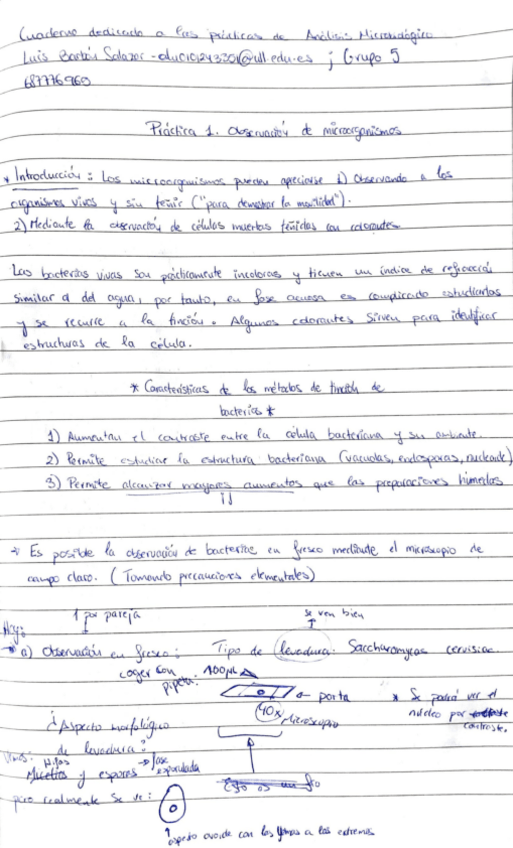 Cuaderno dedicado a las prácticas de Análisis Microbiológico
Luis Bartón Salazar - alu0101243201@ull.edu.es ; Grupo 5
687776969
Práctica 1. Observación de microorganismos
* Introducción: Los microorganismos pueden apreciarse 1) Observando a los
organismos vivos y sin teñir ("para demostrar la movilidad").
2) Mediante la observación de células muertas teñidas con colorantes.
Las bacterias vivas son prácticamente incoloras y tienen un índice de refracción
similar al del agua, por tanto, en fase acuosa es complicado estudiarlas
y se recurre a la tinción. Algunos colorantes sirven para identificar
estructuras de la célula.
* Características de los métodos de tinción de
bacterias *
1) Aumentan el contraste entre la célula bacteriana y su ambiente.
2) Permite estudiar la estructura bacteriana (vacuolas, endosporas, nucleoide)
3) Permite alcanzar mayores aumentos que las preparaciones húmedas
* Es posible la observación de bacterias en fresco mediante el microscopio de
campo claro. (Tomando precauciones elementales)
1 por pareja
se ven bien
Hoy:
* a) Observación en fresco: Tipo de levadura: Saccharomyces cervisiae
coger con
pipeta: 100µl
porta
40x
Microscopio
* Se podrá ver el
núcleo por
contraste.
¿Aspecto morfológico
de levadura?
Hifas
Micelios y esporas → fase
esporulada
pero realmente se ve:
aspecto ovoide con las yemas a los extremos